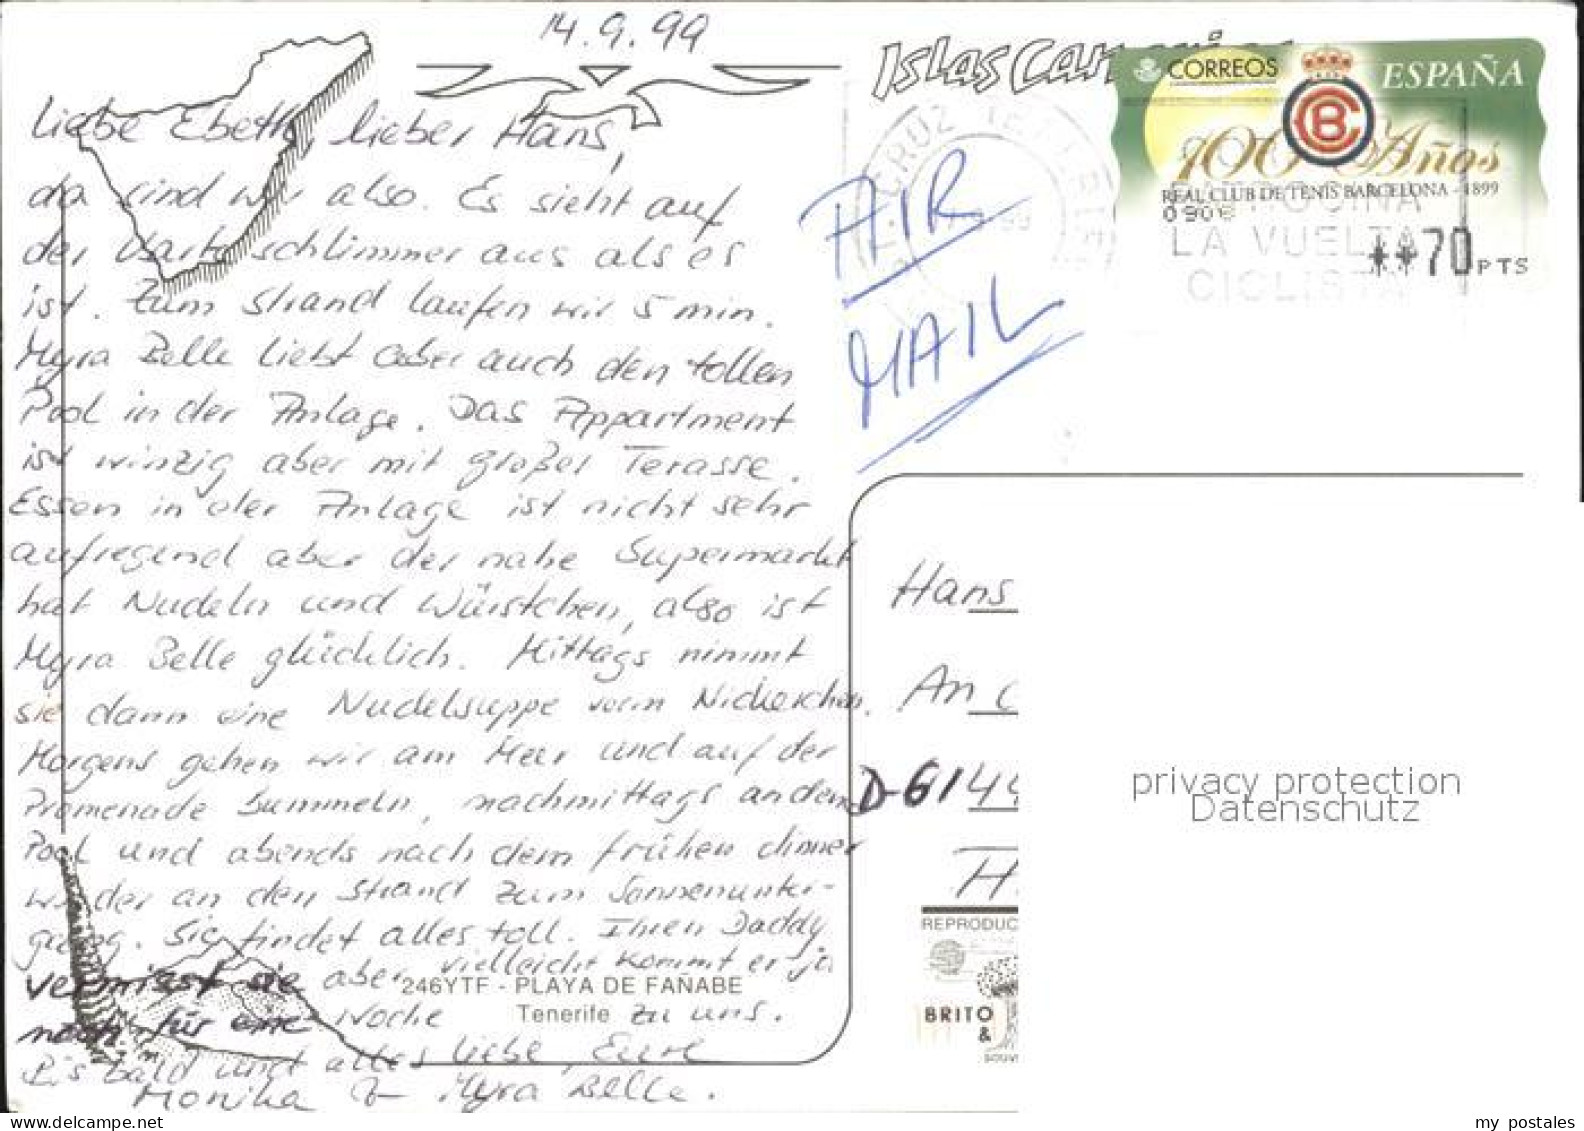 14.9.99
Islas Can
Liebe Ebeth, lieber Hans,
da sind wir also. Es sieht auf
der Karte schlimmer aus als es
ist. Zum Strand laufen wir 5 min.
Myra Belle liebt aber auch den tollen
Pool in der Anlage. Das Appartment
ist winzig aber mit großer Terasse.
Essen in der Anlage ist nicht sehr
aufregend aber der nahe Supermarkt
hat Nudeln und Würstchen, also ist
Myra Belle glücklich. Mittags nimmt
sie dann eine Nudelsuppe vorm Nickerchen.
Morgens gehen wir am Meer und auf der
Promenade bummeln, nachmittags an den
Pool und abends nach dem frühen dinner
wieder an den Strand zum Sonnenunter-
gang. Sie findet alles toll. Ihren Daddy
vermisst sie aber vielleicht kommt er ja
noch für eine Woche zu uns.
Bis bald und alles Liebe, Eure
Monika & Myra Belle.
246YTF - PLAYA DE FAÑABE
Tenerife
AIR
MAIL
CORREOS
ESPAÑA
RCB
100 Años
REAL CLUB DE TENIS BARCELONA - 1899
**70 PTS
CRUZ TENERIFE
LA VUELTA
CICLISTA
Hans
An
D-6144
H
REPRODUC
BRITO
&
SOUV
privacy protection
Datenschutz
www.delcampe.net
my_postales